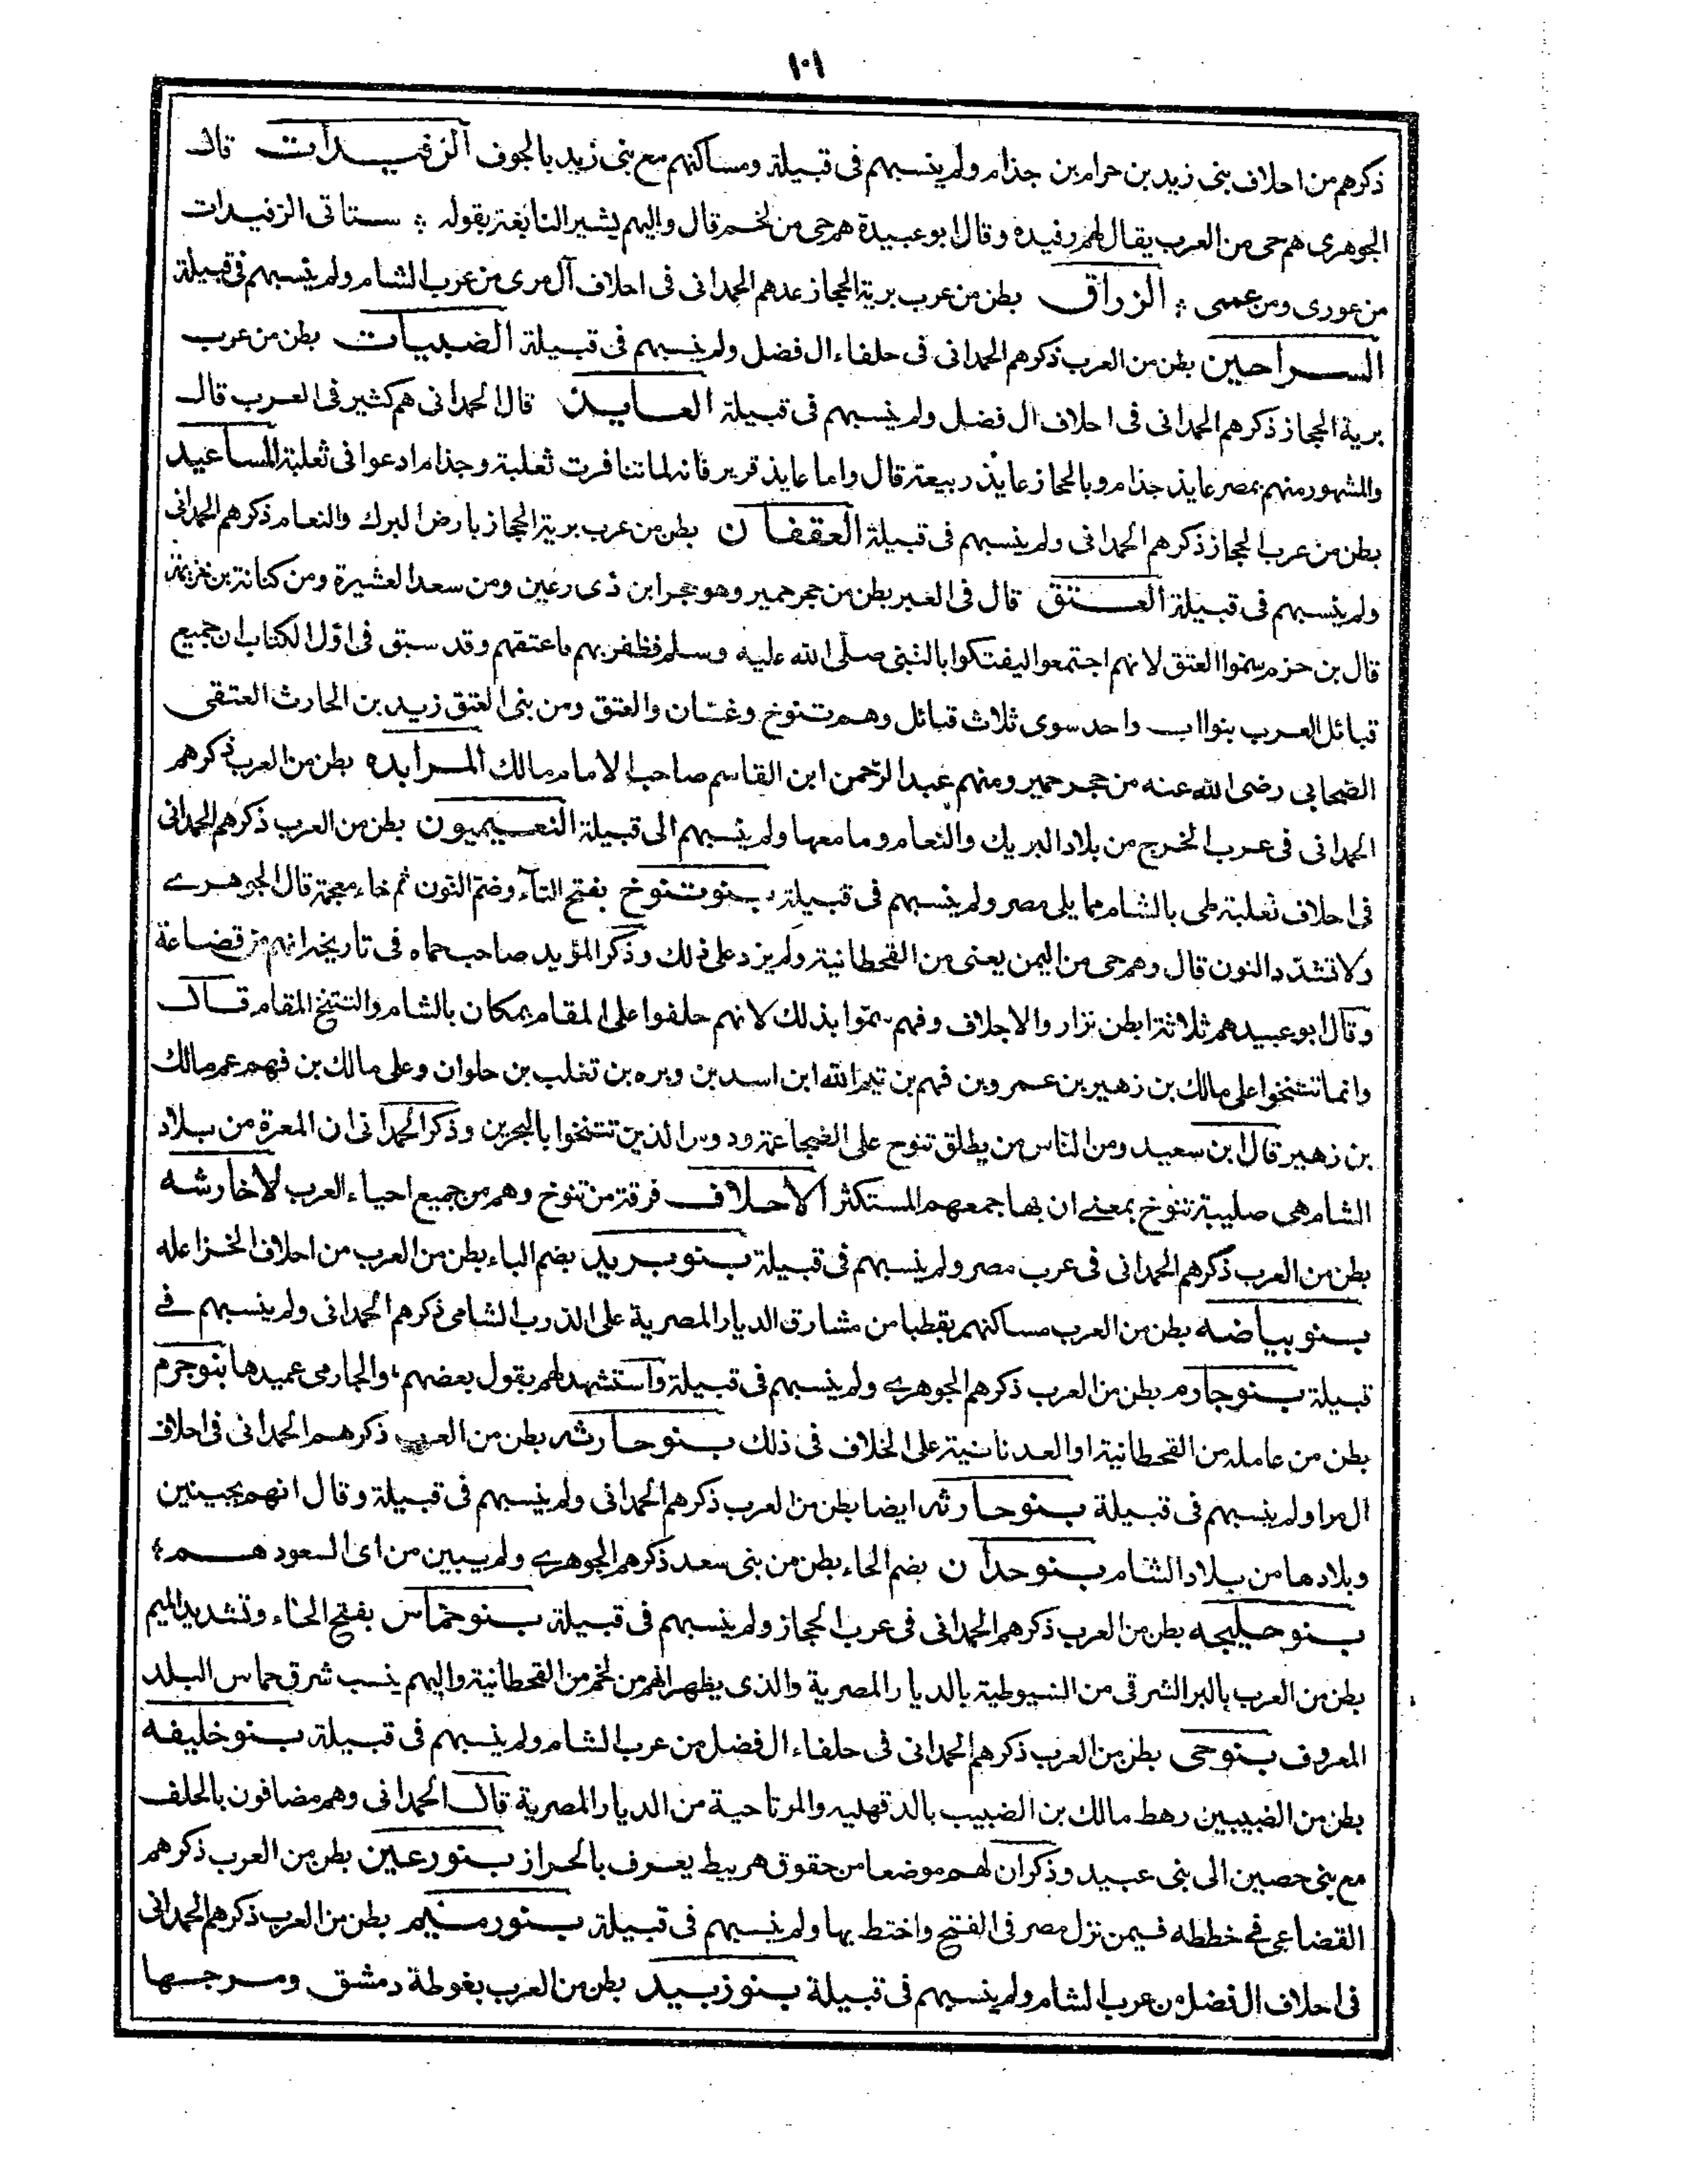 ١٠١
ذكرهم من احلاف بنى زيد بن حرام بن جذام ولم ينسبهم فى قبيلة ومساكنهم مع بنى زيد بالجوف الزفيدات قال
الجوهرى هم حى من العرب يقال لهم رفيده وقال ابو عبيدة هم حى من لخم قال واليهم يشير النابغة بقوله ؞ ستاتى الزفيدات
من عورى ومن عمى ؞ الزراق بطن من عرب برية الحجاز عدهم الحمدانى فى احلاف آل مرى من عرب الشام ولم ينسبهم فى قبيلة
السراحين بطن من العرب ذكرهم الحمدانى فى حلفاء ال فضل ولم ينسبهم فى قبيلة الضبيات بطن من عرب
برية الحجاز ذكرهم الحمدانى فى احلاف ال فضل ولم ينسبهم فى قبيلة العايذ قال الحمدانى هم كثير فى العرب قال
والمشهور منهم بمصر عايذ جذام وبالحجاز عايذ ربيعة قال واما عايذ قرير فانه لما تنافرت ثعلبة وجذام ادعوا فى ثعلبة المساعيد
بطن من عرب الحجاز ذكرهم الحمدانى ولم ينسبهم فى قبيلة العقفان بطن من عرب برية الحجاز بارض البرك والنعام ذكرهم الحمدانى
ولم ينسبهم فى قبيلة العتق قال فى العبر بطن من حجر حمير وهو حجر ابن ذى رعين ومن سعد العشيرة ومن كنانة بن خزيمة
قال بن حزم سموا العتق لانهم اجتمعوا ليفتكوا بالنبى صلى الله عليه وسلم فظفر بهم فاعتقهم وقد سبق فى اول الكتاب ان جميع
قبائل العرب بنو اب واحد سوى ثلاث قبائل وهم تنوخ وغسان والعتق ومن بنى العتق زيد بن الحارث العتقى
الصحابى رضى الله عنه من حجر حمير ومنهم عبد الرحمن ابن القاسم صاحب الامام مالك المرابده بطن من العرب ذكرهم
الحمدانى فى عرب الخرج من بلاد البريك والنعام وما معها ولم ينسبهم الى قبيلة النعيميون بطن من العرب ذكرهم الحمدانى
فى احلاف ثعلبة طى بالشام مما يلى مصر ولم ينسبهم فى قبيلة بنو تنوخ بفتح التآء وضم النون ثم خاء معجمة قال الجوهرى
ولا تشدد النون قال وهم حى من اليمن يعنى من القحطانية ولم يزد على ذلك وذكر المؤيد صاحب حماه فى تاريخه انهم من قضاعة
وقال ابو عبيد هم ثلاثة ابطن نزار والاحلاف وفهم سموا بذلك لانهم حلفوا على المقام بمكان بالشام والتنتخ المقام قال
وانما تنتخوا على مالك بن زهير بن عمرو بن فهم بن تيم الله ابن اسد بن وبره بن تغلب بن حلوان وعلى مالك بن فهم عم مالك
بن زهير قال ابن سعيد ومن الناس من يطلق تنوح على الضجاعمة ودوس الذين تتنخوا بالبحرين وذكر الحمدانى ان المعرة من بلاد
الشام هى صليبة تنوخ بمعنى ان بها جمعهم المستكثر الاحلاف فرقة من تنوخ وهم من جميع احياء العرب لاخارشه
بطن من العرب ذكرهم الحمدانى فى عرب مصر ولم ينسبهم فى قبيلة بنو بريد بضم الباء بطن من العرب من احلاف الخزاعله
بنو بياضه بطن من العرب مساكنهم بقطيا من مشارق الديار المصرية على الدرب الشامى ذكرهم الحمدانى ولم ينسبهم فى
قبيلة بنو جارم بطن من العرب ذكرهم الجوهرى ولم ينسبهم فى قبيلة واستشهد لهم بقول بعضهم ؛ والجارمى عميدها بنو جرم
بطن من عامله من القحطانية او العدنانية على الخلاف فى ذلك بنو حارثه بطن من العرب ذكرهم الحمدانى فى احلاف
ال مرا ولم ينسبهم فى قبيلة بنو حارثه ايضا بطن من العرب ذكرهم الحمدانى ولم ينسبهم فى قبيلة وقال انهم بجبينين
وبلادها من بلاد الشام بنو حدان بضم الحاء بطن من بنى سعد ذكرهم الجوهرى ولم يبين من اى السعود هم ؛
بنو حليجه بطن من العرب ذكرهم الحمدانى فى عرب الحجاز ولم ينسبهم فى قبيلة بنو حمّاس بفتح الحاء وتشديد الميم
بطن من العرب بالبر الشرقى من السيوطية بالديار المصرية والذى يظهر انهم من لخم من القحطانية واليهم ينسب شرق حماس البلد
المعروف بنو حى بطن من العرب ذكرهم الحمدانى فى حلفاء ال فضل من عرب الشام ولم ينسبهم فى قبيلة بنو خليفه
بطن من الضبيبين رهط مالك بن الضبيب بالدقهليه والمرتاحية من الديار المصرية قال الحمدانى وهم مضافون بالحلف
مع بنى حصين الى بنى عبيد وذكر ان لهم موضعا من حقوق هربيط يعرف بالحراز بنو رعين بطن من العرب ذكرهم
القضاعى فى خططه فيمن نزل مصر فى الفتح واختط بها ولم ينسبهم فى قبيلة بنو رميم بطن من العرب ذكرهم الحمدانى
فى احلاف ال فضل من عرب الشام ولم ينسبهم فى قبيلة بنو زبيد بطن من العرب بغوطة دمشق ومرجها